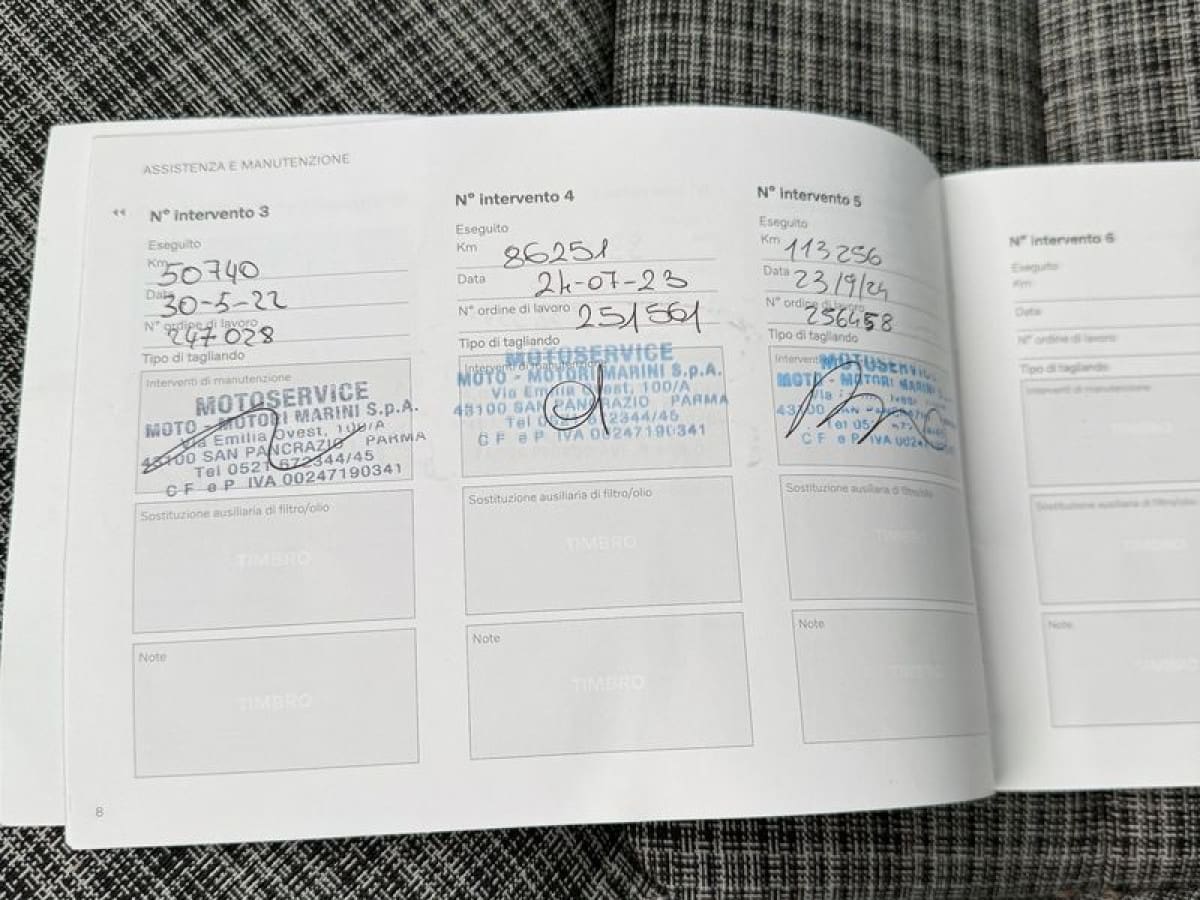 ASSISTENZA E MANUTENZIONE
N° intervento 3
Eseguito
Km 50740
Data 30-5-22
N° ordine di lavoro 247028
Tipo di tagliando
Interventi di manutenzione
MOTOSERVICE
MOTO - MOTORI MARINI S.p.A.
Via Emilia Ovest, 100/A
43100 SAN PANCRAZIO PARMA
Tel 0521 672344/45
C F e P IVA 00247190341
Sostituzione ausiliaria di filtro/olio
TIMBRO
Note
TIMBRO
8
N° intervento 4
Eseguito
Km 86251
Data 24-07-23
N° ordine di lavoro 251561
Tipo di tagliando
Interventi di manutenzione
MOTOSERVICE
MOTO - MOTORI MARINI S.p.A.
Via Emilia Ovest, 100/A
43100 SAN PANCRAZIO PARMA
Tel 0521 672344/45
C F e P IVA 00247190341
Sostituzione ausiliaria di filtro/olio
TIMBRO
Note
TIMBRO
N° intervento 5
Eseguito
Km 113256
Data 23/9/24
N° ordine di lavoro 256458
Tipo di tagliando
Interventi
MOTOSERVICE
MOTO - MOTORI MARINI
Via
43100
Tel 052
C F e P IVA 0024
Sostituzione ausiliaria di filtro/olio
TIMBRO
Note
TIMBRO
N° intervento 6
Eseguito
Km
Data
N° ordine di lavoro
Tipo di tagliando
Interventi di manutenzione
TIMBRO
Sostituzione ausiliaria di filtro/olio
TIMBRO
Note